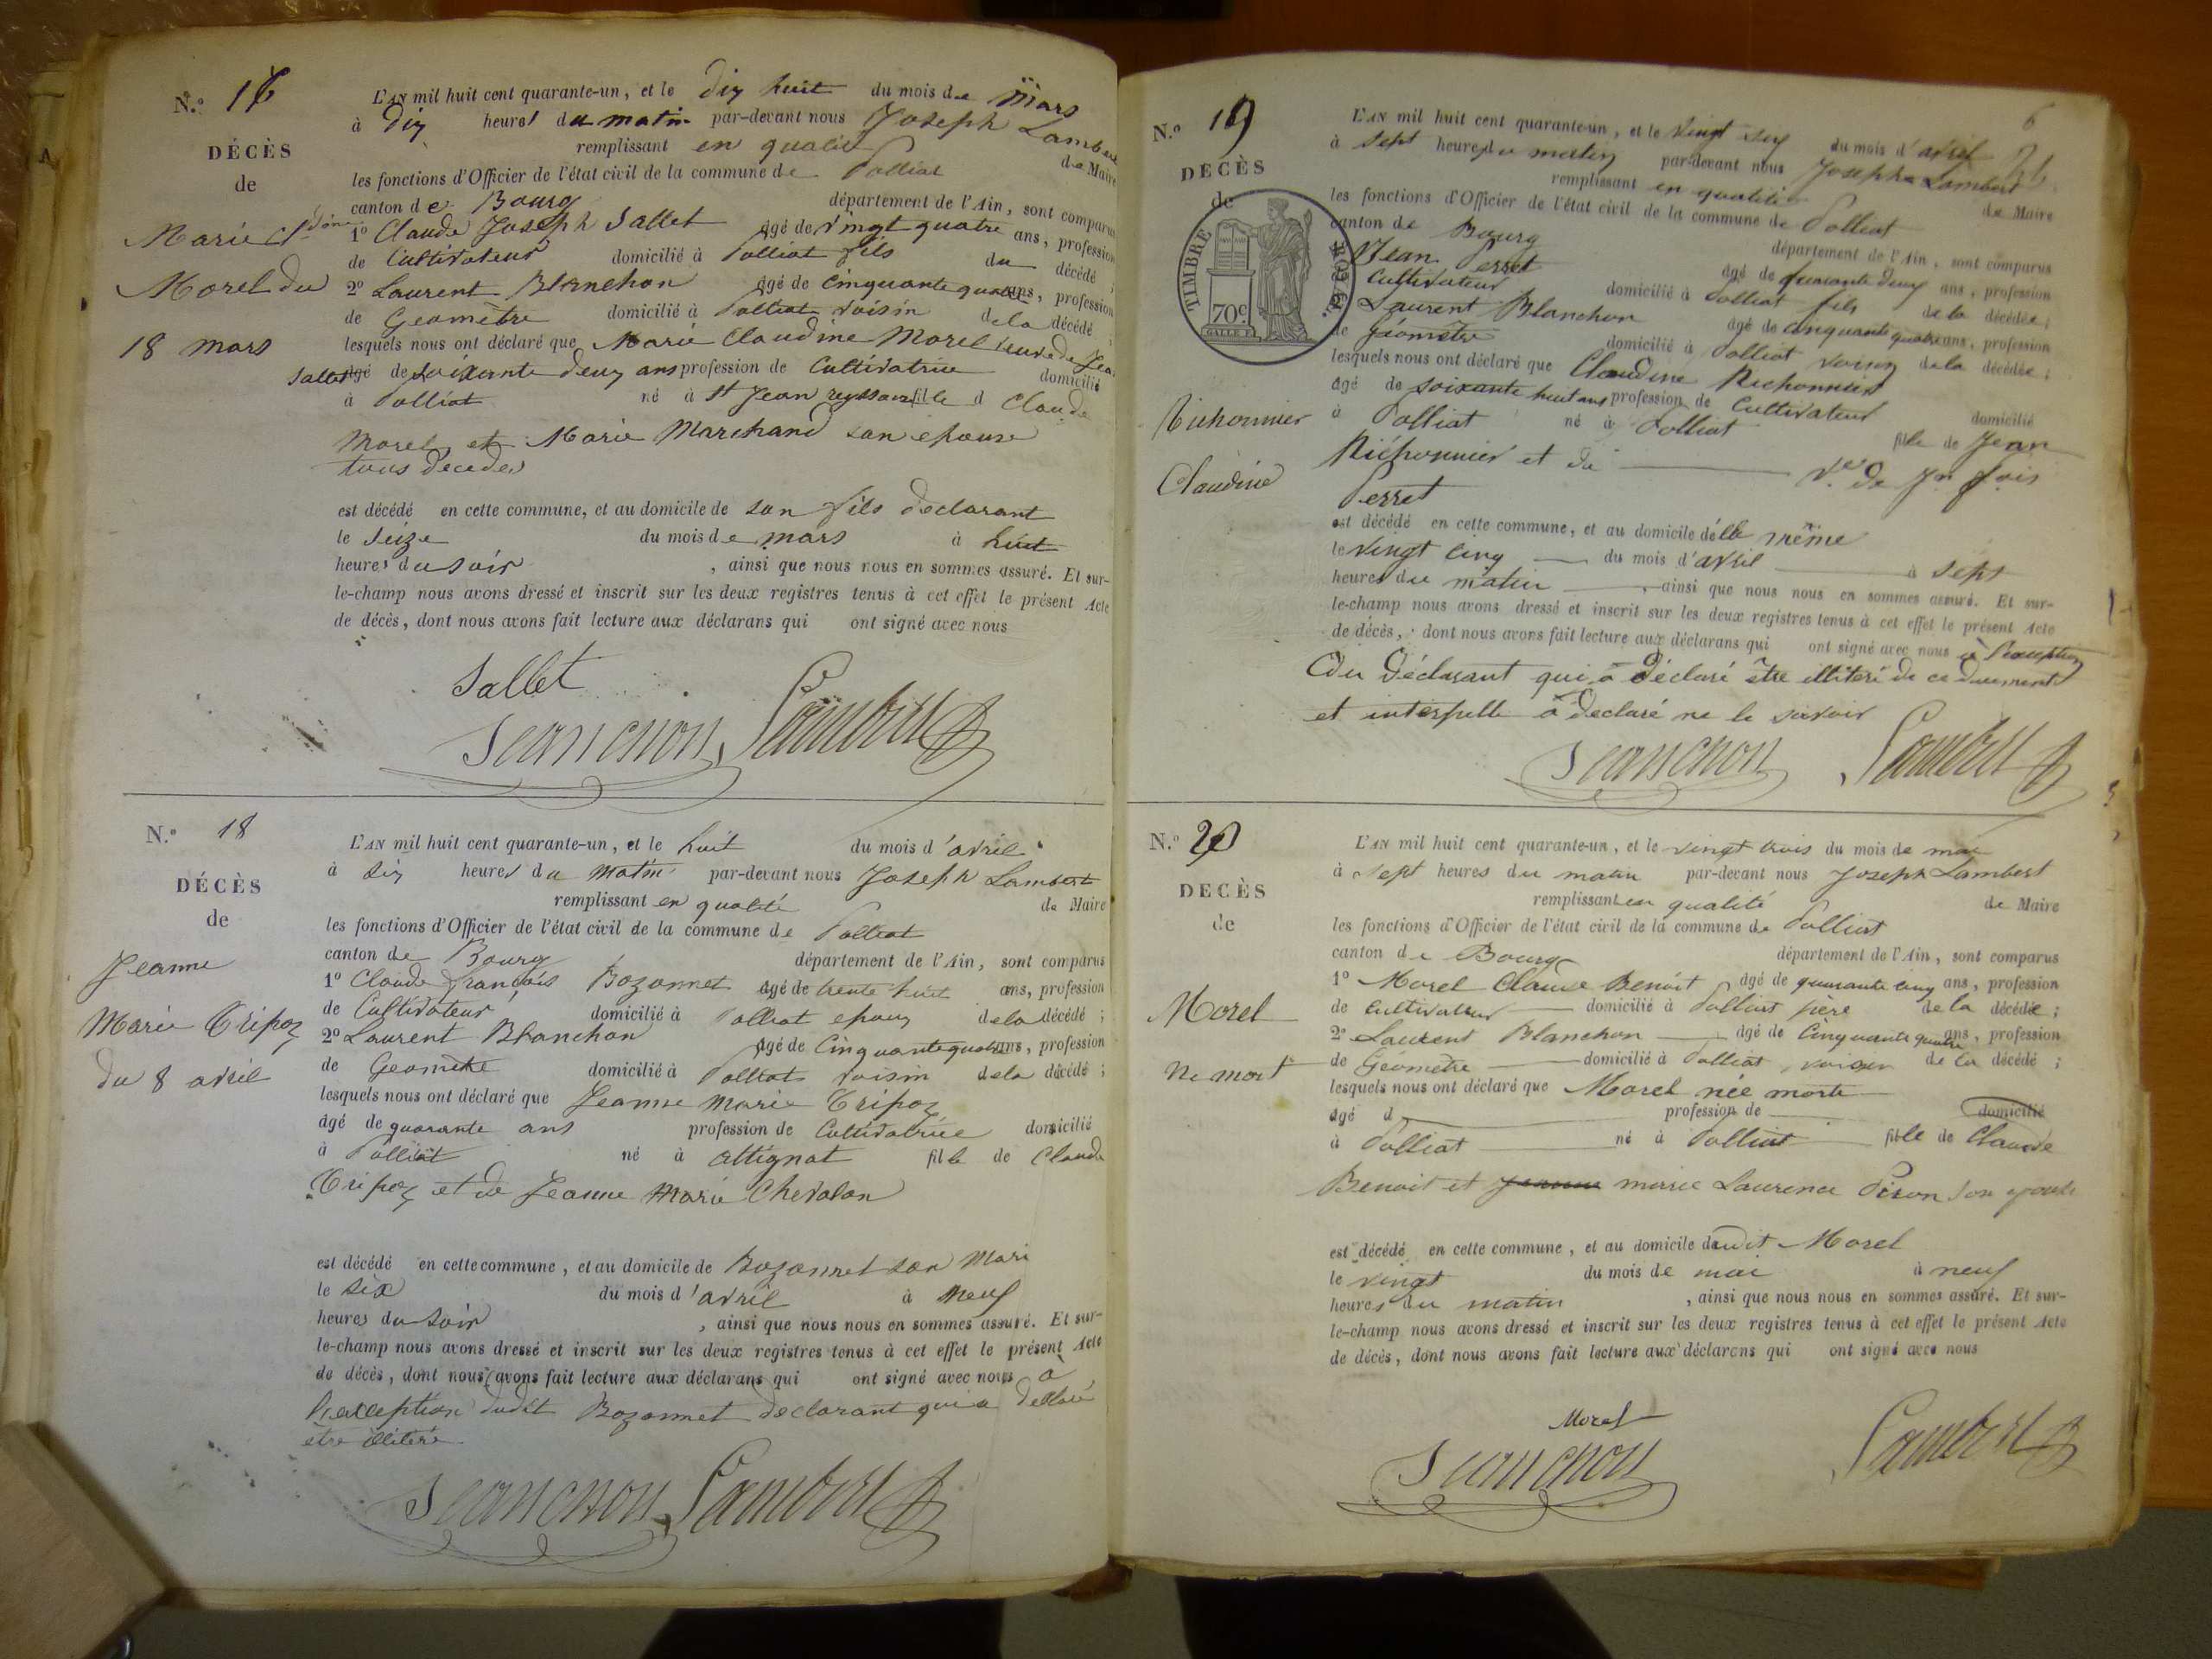 N.º 17
DÉCÈS
de
Marie Cl.dine
Morel du
18 mars
L'AN mil huit cent quarante-un, et le dix huit du mois de mars
à dix heures du matin par-devant nous Joseph Lambert
remplissant en qualité de Maire
les fonctions d'Officier de l'état civil de la commune de Polliat
canton de Bourg département de l'Ain, sont comparus
1º Claude Joseph Sallet âgé de vingt quatre ans, profession
de Cultivateur domicilié à Polliat fils du décédé ;
2º Laurent Blanchon âgé de Cinquante quatre ans, profession
de Géomètre domicilié à Polliat voisin de la décédé ;
lesquels nous ont déclaré que Marie Claudine Morel veuve de Jean
Sallet âgé de soixante deux ans profession de Cultivatrice domicilié
à Polliat né à St Jean reyssouze fille d Claude
Morel et Marie Marchand son epouse
tous decedes
est décédé en cette commune, et au domicile de son fils declarant
le Seize du mois de mars à huit
heures du soir , ainsi que nous nous en sommes assuré. Et sur-
le-champ nous avons dressé et inscrit sur les deux registres tenus à cet effet le présent Acte
de décès, dont nous avons fait lecture aux déclarans qui ont signé avec nous
Sallet
Blanchon Lambert
N.º 18
DÉCÈS
de
Jeanne
Marie Tripoz
du 8 avril
L'AN mil huit cent quarante-un, et le huit du mois d'avril
à dix heures du matin par-devant nous Joseph Lambert
remplissant en qualité de Maire
les fonctions d'Officier de l'état civil de la commune de Polliat
canton de Bourg département de l'Ain, sont comparus
1º Claude françois Bozonnet âgé de trente huit ans, profession
de Cultivateur domicilié à Polliat epoux de la décédé ;
2º Laurent Blanchon âgé de Cinquante quatre ans, profession
de Geomètre domicilié à Polliat voisin de la décédé ;
lesquels nous ont déclaré que Jeanne Marie Tripoz
âgé de quarante ans profession de Cultivatrice domicilié
à Polliat né à attignat fille de Claude
Tripoz et de Jeanne Marie Chevalon
est décédé en cette commune, et au domicile de Bozonnet son Mari
le six du mois d'avril à neuf
heures du soir , ainsi que nous nous en sommes assuré. Et sur-
le-champ nous avons dressé et inscrit sur les deux registres tenus à cet effet le présent Acte
de décès, dont nous avons fait lecture aux déclarans qui ont signé avec nous à
l'exception dudit Bozonnet declarant qui a declaré
être illitéré
Blanchon Lambert
6
N.º 19
DECÈS
de
TIMBRE ROYAL
70c.
Richonnier
Claudine
L'AN mil huit cent quarante-un, et le vingt six du mois d'avril
à sept heures du matin par-devant nous Joseph Lambert
remplissant en qualité de Maire
les fonctions d'Officier de l'état civil de la commune de Polliat
canton de Bourg département de l'Ain, sont comparus
Jean Perret âgé de quarante deux ans, profession
Cultivateur domicilié à Polliat fils de la décédée ;
Laurent Blanchon âgé de cinquante quatre ans, profession
de Géomètre domicilié à Polliat voisin de la décédée ;
lesquels nous ont déclaré que Claudine Richonnier
âgé de soixante huit ans profession de Cultivateur domicilié
à Polliat né à Polliat fille de Jean
Richonnier et de Ve de Jn fois
Perret
est décédé en cette commune, et au domicile d'elle même
le vingt cinq du mois d'avril à sept
heures du matin , ainsi que nous nous en sommes assuré. Et sur-
le-champ nous avons dressé et inscrit sur les deux registres tenus à cet effet le présent Acte
de décès, dont nous avons fait lecture aux déclarans qui ont signé avec nous à l'exception
du Déclarant qui a déclaré être illitéré de ce
et interpellé a declaré ne le savoir
Blanchon Lambert
N.º 20
DECÈS
de
Morel
né mort
L'AN mil huit cent quarante-un, et le vingt trois du mois de mai
à sept heures du matin par-devant nous Joseph Lambert
remplissant en qualité de Maire
les fonctions d'Officier de l'état civil de la commune de Polliat
canton de Bourg département de l'Ain, sont comparus
1º Morel Claude Benoit âgé de quarante cinq ans, profession
de cultivateur domicilié à Polliat père de la décédée ;
2º Laurent Blanchon âgé de Cinquante quatre ans, profession
de Géomètre domicilié à Polliat, voisin de la décédé ;
lesquels nous ont déclaré que Morel née morte
âgé d profession de domicilié
à Polliat né à Polliat fille de Claude
Benoit et Jeanne marie Laurence Piron son epouse
est décédé en cette commune, et au domicile dudit Morel
le vingt du mois de mai à neuf
heures du matin , ainsi que nous nous en sommes assuré. Et sur-
le-champ nous avons dressé et inscrit sur les deux registres tenus à cet effet le présent Acte
de décès, dont nous avons fait lecture aux déclarans qui ont signé avec nous
Morel
Blanchon Lambert